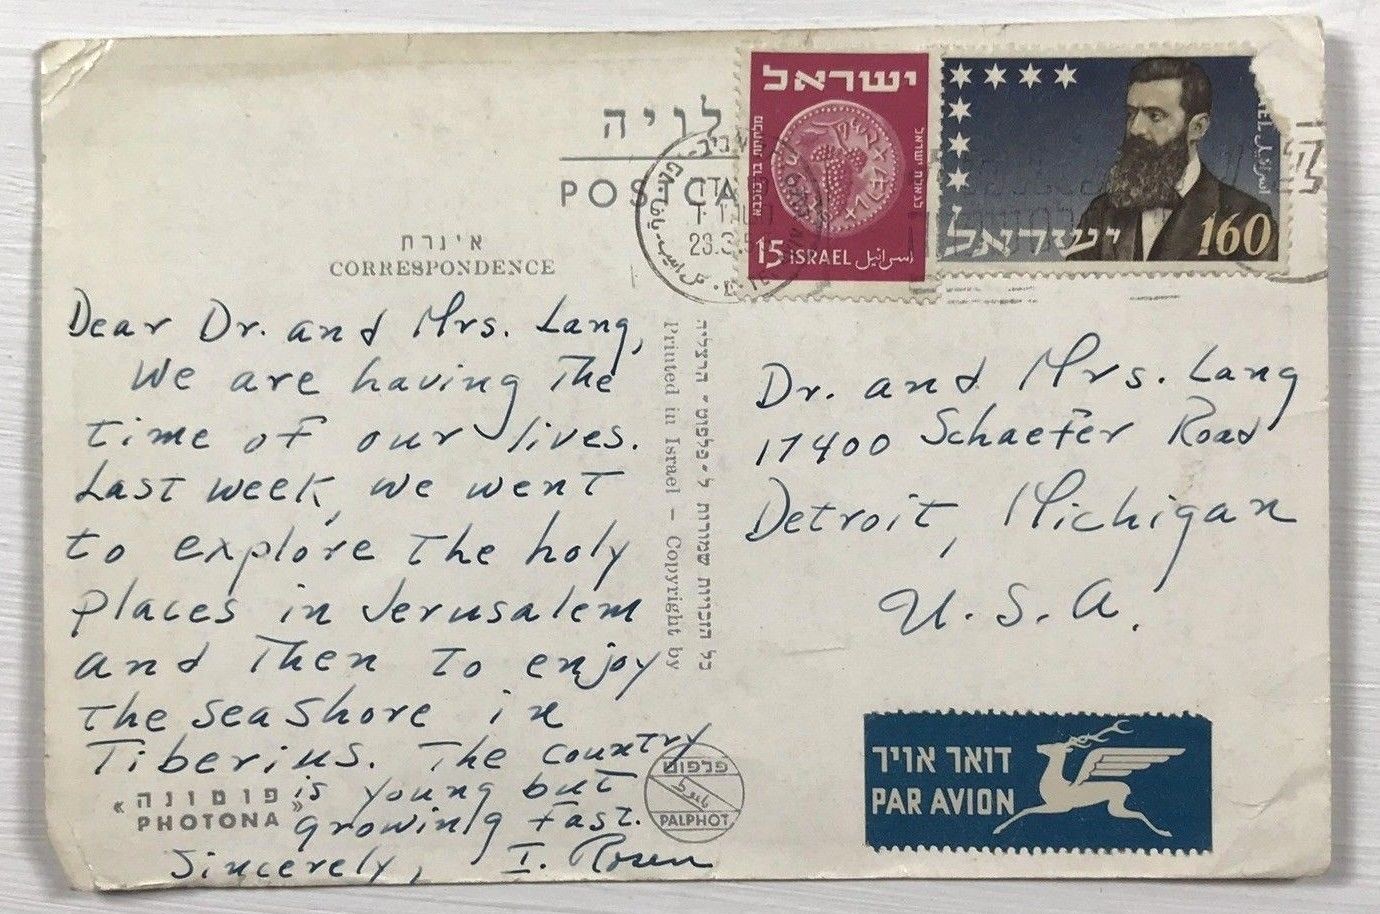 לויה
POST CA
ישראל
15 ISRAEL اسرائيل
ישראל 160
23.3.5
אינרת
CORRESPONDENCE
Dear Dr. and Mrs. Lang,
We are having the
time of our lives.
Last week, we went
to explore the holy
places in Jerusalem
and then to enjoy
the seashore in
Tiberius. The country
is young but
growing fast.
Sincerely, I. Rosen
« פוטונה »
PHOTONA
כל הזכויות שמורות ל"פלפוט" הרצליה
Printed in Israel – Copyright by
פלפוט
بالفوط
PALPHOT
Dr. and Mrs. Lang
17400 Schaefer Road
Detroit, Michigan
U.S.A.
דואר אויר
PAR AVION